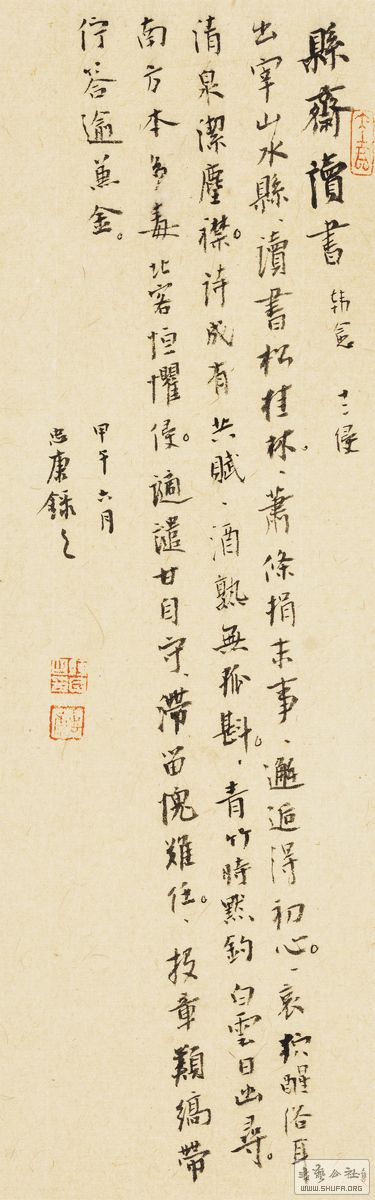 縣齋讀書 韩愈 十二侵
出宰山水縣、讀書松桂林。蕭條捐末事、邂逅得初心。哀狖醒俗耳
清泉潔塵襟。詩成有共賦、酒熟無孤斟。青竹時默釣白雲日幽尋。
南方本多毒北客恒懼侵。謫譴甘自守、滯留愧難任。投章類縞帶
佇答逾兼金。
甲午六月
忠康錄之
WWW.SHUFA.ORG